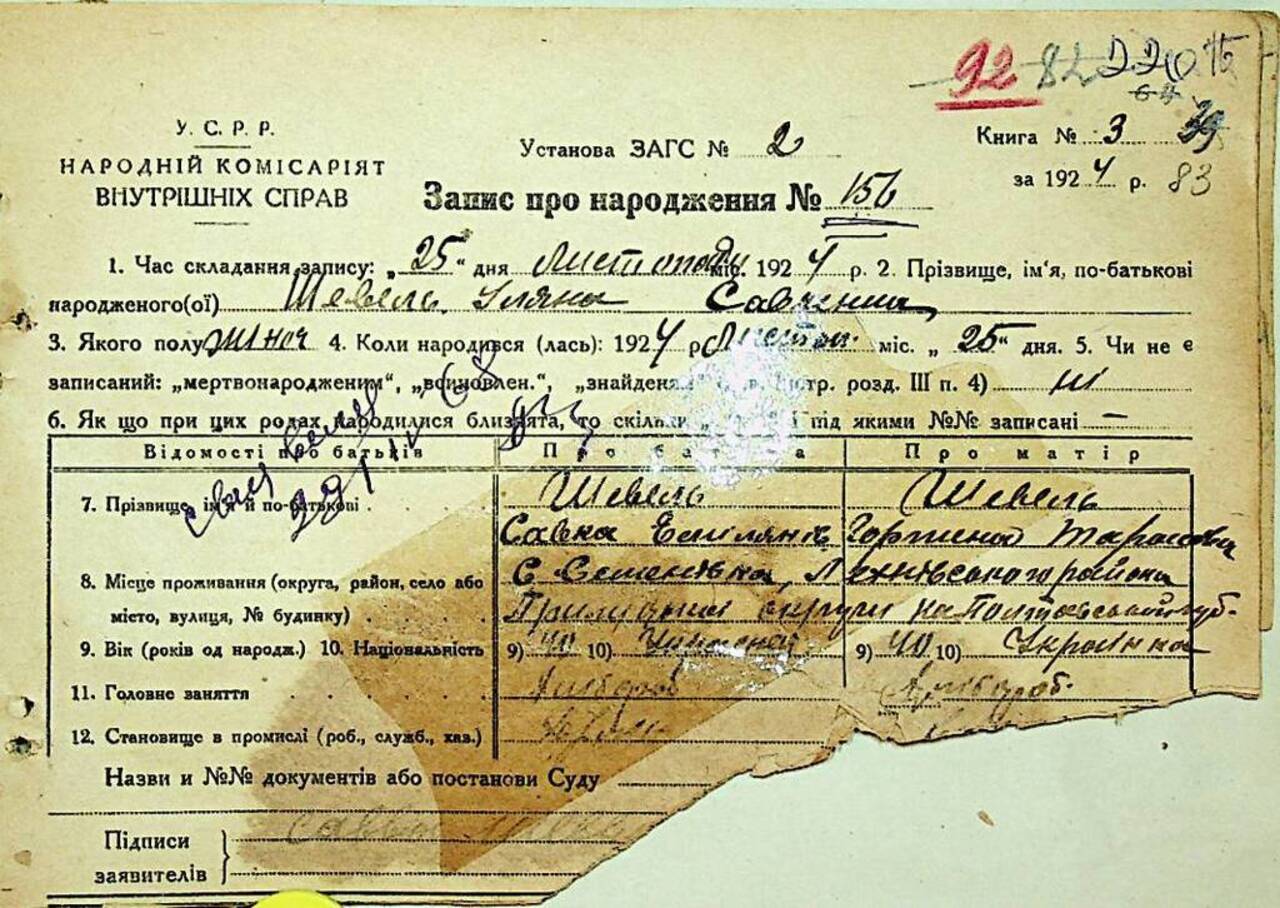 92 82 220
У. С. Р. Р.
НАРОДНІЙ КОМІСАРІЯТ
ВНУТРІШНІХ СПРАВ
Установа ЗАГС № 2
Книга № 3 39
за 1924 р. 83
Запис про народження № 156
1. Час складання запису: „25“ дня Листопаду міс. 1924 р. 2. Прізвище, ім'я, по-батькові
народженого(ої) Шевель Уляна Савченна
3. Якого полу жіноч 4. Коли народився (лась): 1924 р Листоп. міс. „25“ дня. 5. Чи не є
записаний: „мертвонародженим“, „всиновлен.“, „знайденям“ розд. III п. 4)
6. Як що при цих родах народилися близнята, то скільки під якими №№ записані —
Відомості про батьків Про батька Про матір
7. Прізвище, ім'я й по-батькові . Шевель Шевель
Савка Горпина Тарасовна
8. Місце проживання (округа, район, село або С Семенівка, района
місто, вулиця, № будинку) . . . округи на Полтавський губ.
9. Вік (років од народж.) 10. Національність 9) 40 10) 9) 40 10) Українка
11. Головне заняття . . . . . Хлібороб Хлібороб.
12. Становище в промислі (роб., служб., хаз.)
Назви и №№ документів або постанови Суду
Підписи
заявителів